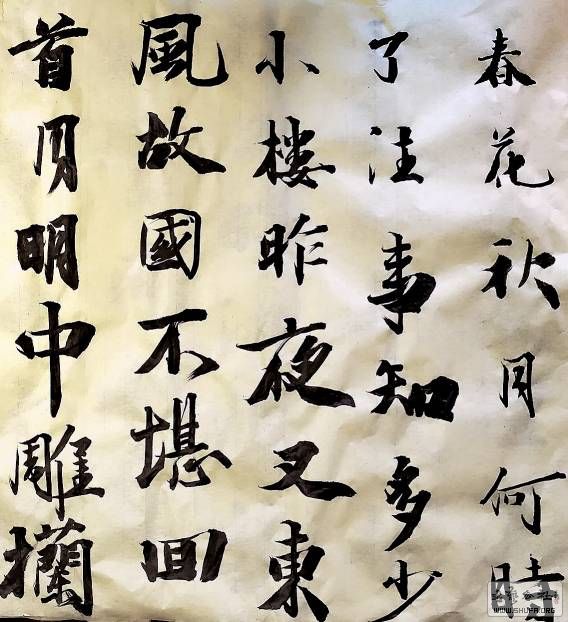 春花秋月何時
了注事知多少
小楼昨夜又東
風故國不堪回
首月明中雕欄
WWW.SHUFA.ORG